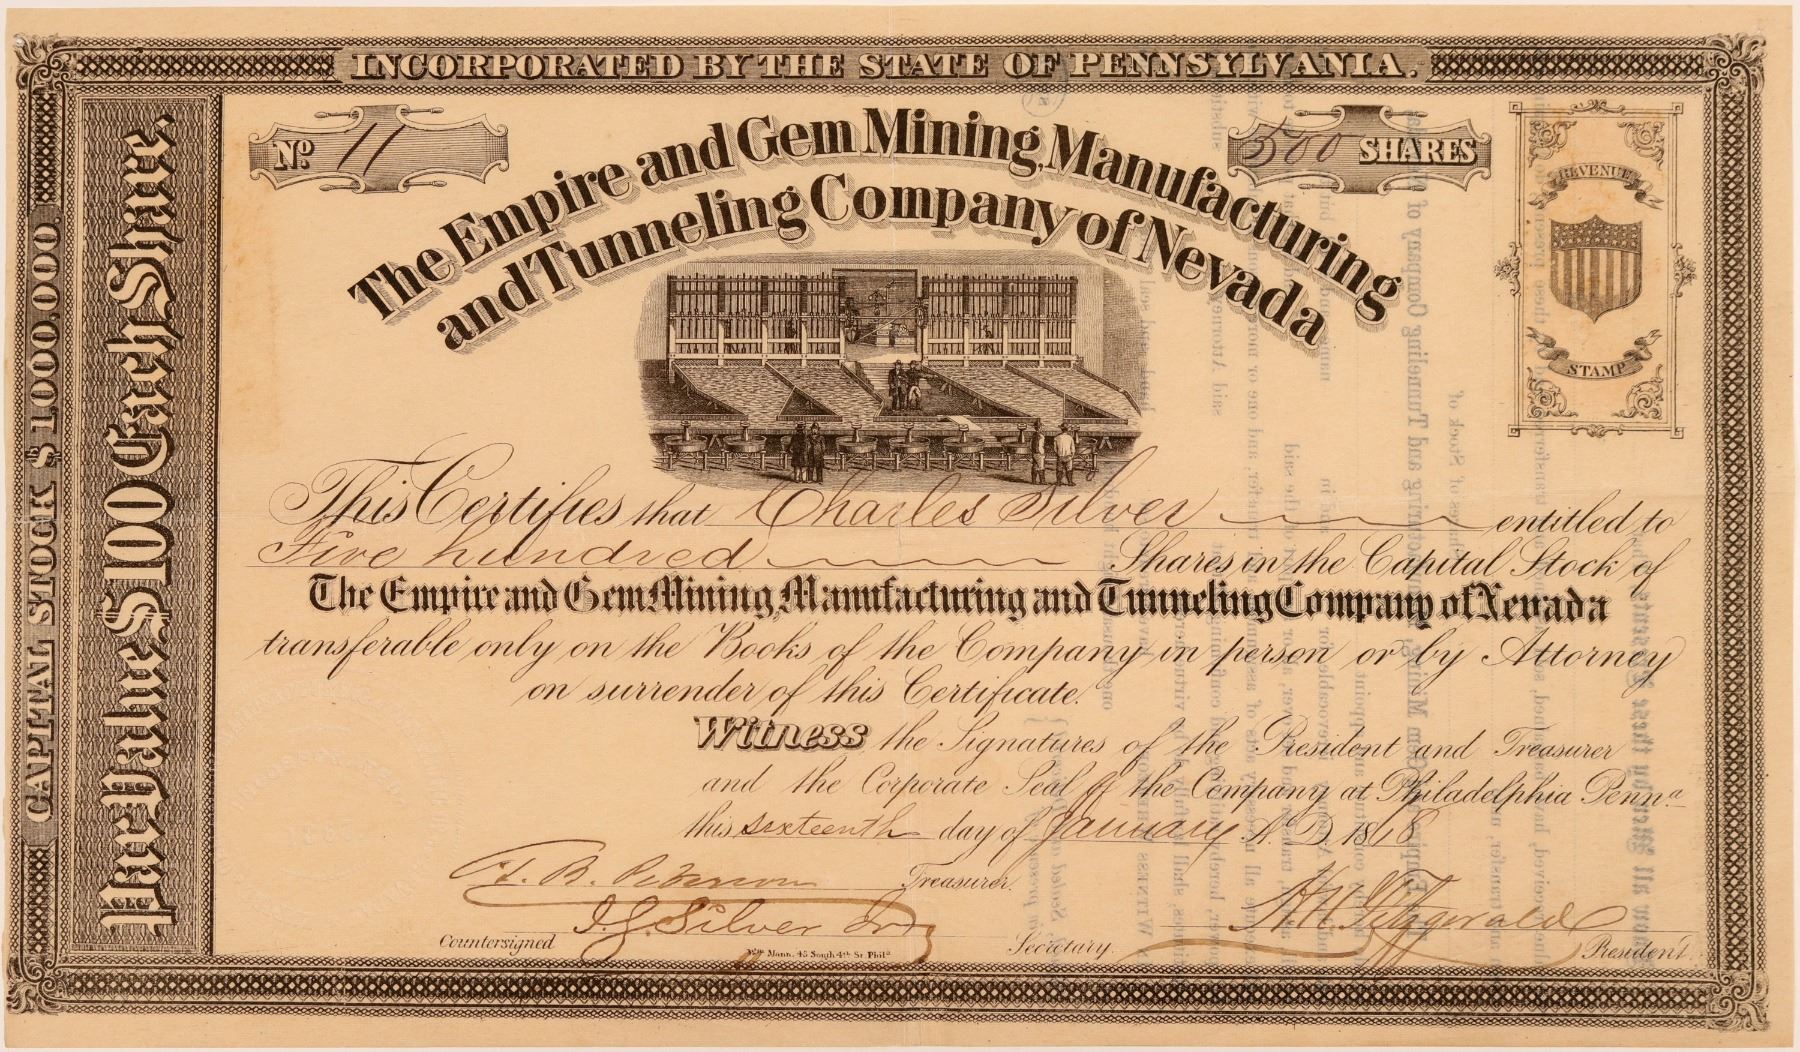 INCORPORATED BY THE STATE OF PENNSYLVANIA.
CAPITAL STOCK $1,000,000.
Par Value $100 Each Share.
No. 11
500 SHARES
The Empire and Gem Mining, Manufacturing
and Tunneling Company of Nevada
REVENUE
STAMP
This Certifies that Charles Silver entitled to
Five hundred Shares in the Capital Stock of
The Empire and Gem Mining, Manufacturing and Tunneling Company of Nevada
transferable only on the Books of the Company in person or by Attorney
on surrender of this Certificate.
Witness the Signatures of the President and Treasurer
and the Corporate Seal of the Company at Philadelphia Penna
this sixteenth day of January A.D. 1868
Treasurer.
J. G. Silver Jr
H. H. Fitzgerald
Countersigned
Secretary.
President.
Wm Mann. 43 South 4th St. Phila